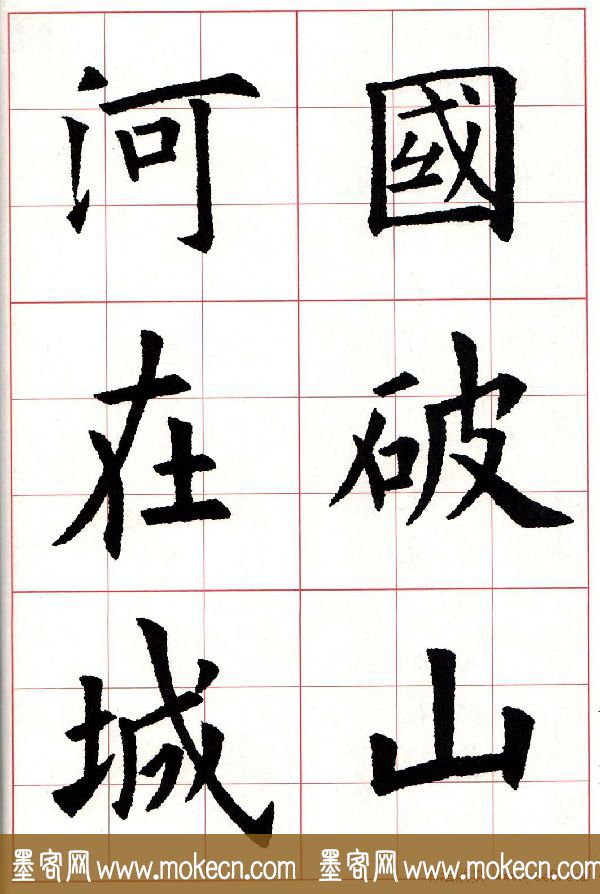 國破山
河在城
墨客网 www.mokecn.com 墨客网 www.mokecn.com